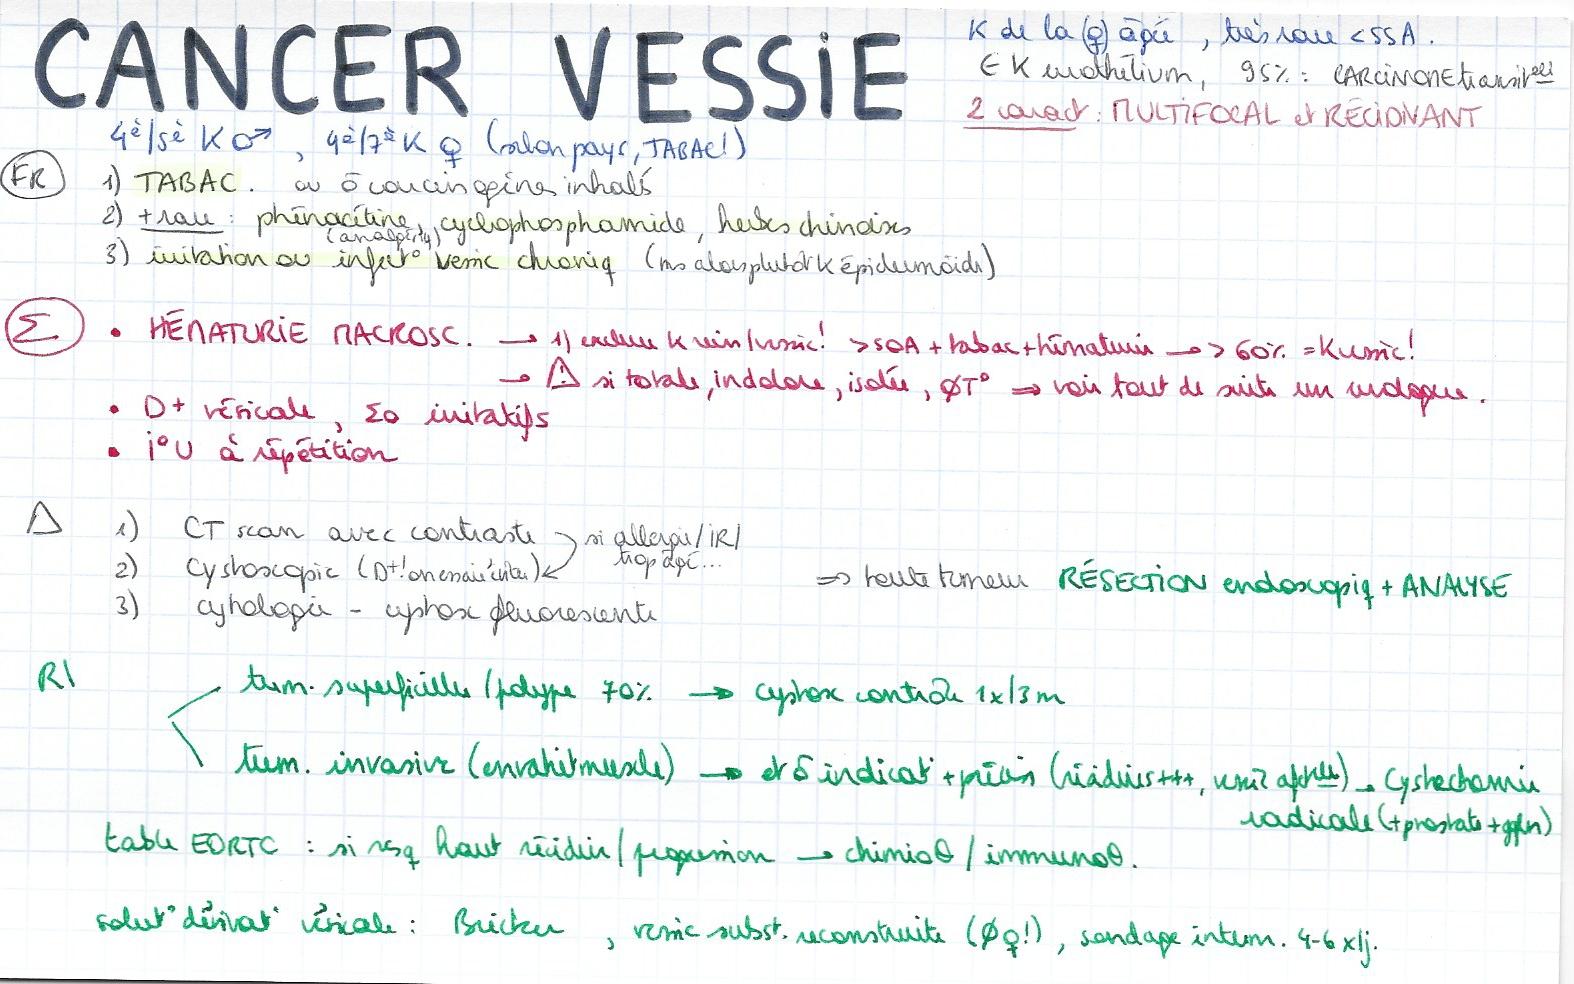 CANCER VESSIE
K de la (♀) âgée, très rare < 55A.
∈ K urothélium, 95% : CARCINOME transit^el
2 caract : MULTIFOCAL et RÉCIDIVANT
4è/5è K ♂, 4è/7è K ♀ (selon pays, TABAC!)
FR 1) TABAC. ou ō carcinogènes inhalés
2) + rare : phénacétine, cyclophosphamide, herbes chinoises
(analgésiq)
3) irritation ou infect° vessie chroniq (ms alors plutôt K épidermoïde)
Σ • HÉMATURIE MACROSC. → 1) exclure K rein/vessie! >50A + tabac + hématurie → > 60% = K vessie!
→ ⚠ si totale, indolore, isolée, ØT° ⇒ voir tout de suite un urologue.
• D+ vésicale, Σo irritatifs
• i°U à répétition
Δ 1) CT scan avec contraste si allergie/IR/
trop âgé...
2) Cystoscopie (D+! on essaie éviter)
⇒ toute tumeur RÉSECTION endoscopiq + ANALYSE
3) cytologie - cystosc fluorescente
R/ tum. superficielles/polype 70% → cystosc contrôle 1x/3m
tum. invasive (envahit muscle) → et δ indicat° + précis (récidives +++, vessie) → Cystectomie
radicale (+ prostate + ggln)
table EORTC : si risq haut récidive/progression → chimioθ / immunoθ.
solut° dérivat° vésicale : Bricker, vessie subst. reconstruite (Ø♀!), sondage interm. 4-6 x/j.